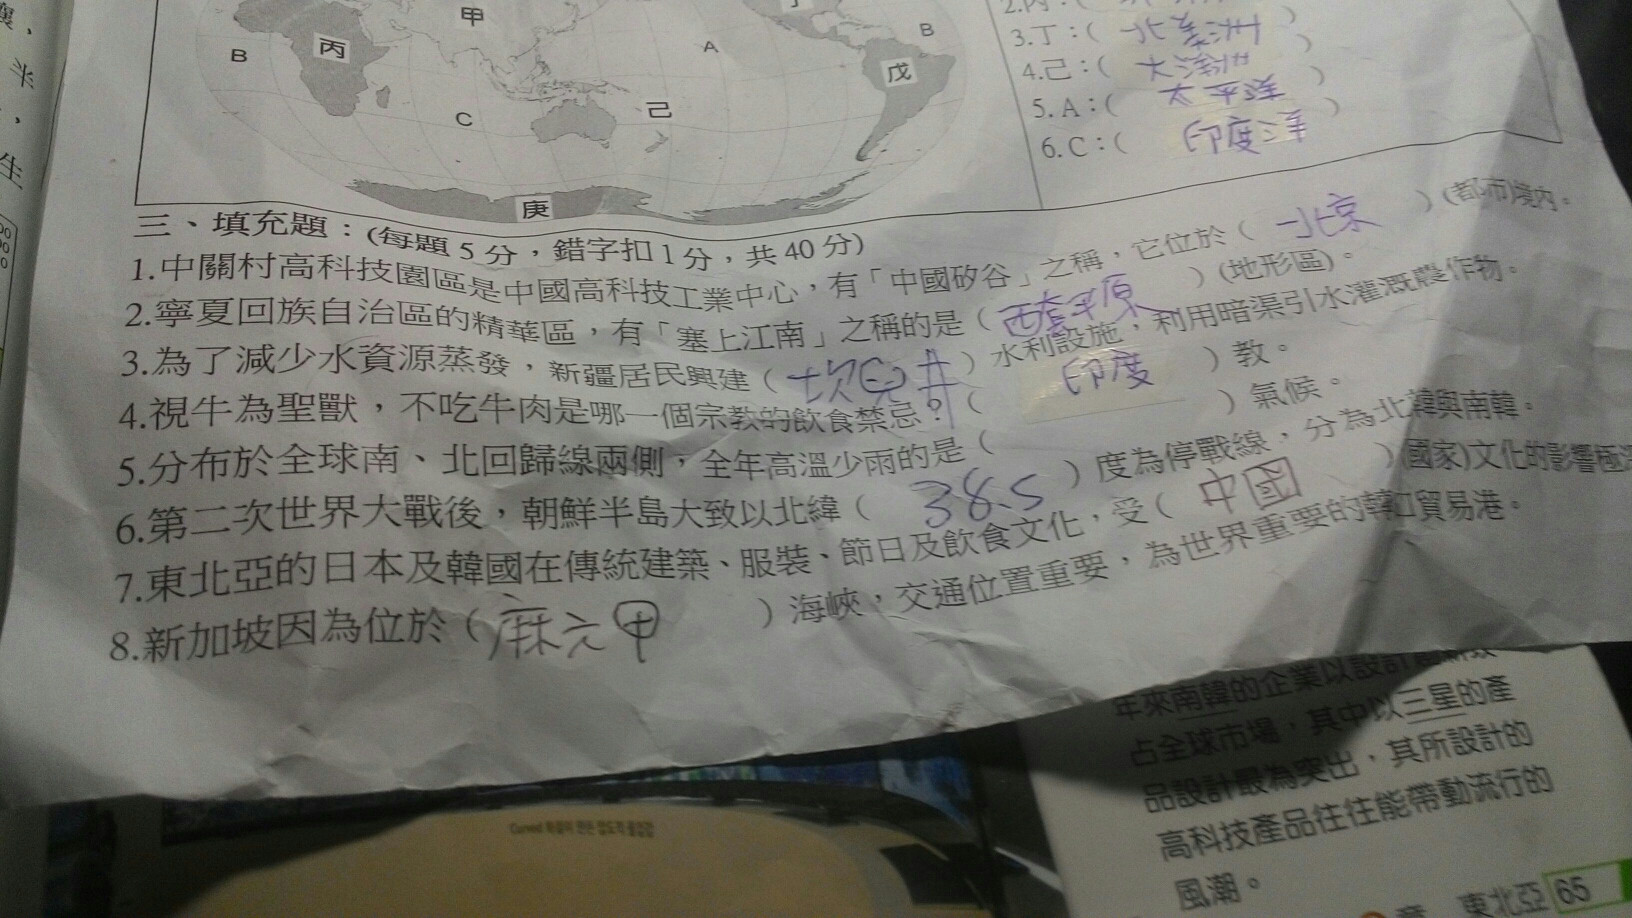 甲
B
丙
A
B
戊
C
己
庚
3.丁：( 北美洲 )
4.己：( 大洋洲 )
5. A：( 太平洋 )
6. C：( 印度洋 )
三、填充題：(每題 5 分，錯字扣 1 分，共 40 分)
1.中關村高科技園區是中國高科技工業中心，有「中國矽谷」之稱，它位於 ( 北京 ) (都市)境內。
2.寧夏回族自治區的精華區，有「塞上江南」之稱的是 ( 西套平原 ) (地形區)。
3.為了減少水資源蒸發，新疆居民興建 ( 坎兒井 ) 水利設施，利用暗渠引水灌溉農作物。
4.視牛為聖獸，不吃牛肉是哪一個宗教的飲食禁忌？( 印度 ) 教。
5.分布於全球南、北回歸線兩側，全年高溫少雨的是 ( ) 氣候。
6.第二次世界大戰後，朝鮮半島大致以北緯 ( 38.5 ) 度為停戰線，分為北韓與南韓。
7.東北亞的日本及韓國在傳統建築、服裝、節日及飲食文化，受 ( 中國 ) (國家)文化的影響極
8.新加坡因為位於 ( 麻六甲 ) 海峽，交通位置重要，為世界重要的轉口貿易港。
年來南韓的企業以設計
占全球市場，其中以三星的產
品設計最為突出，其所設計的
高科技產品往往能帶動流行的
風潮。
東北亞 65
生